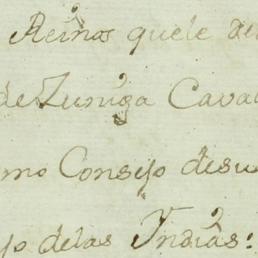 Reinos quele de
de Zuniga Cava
mo Consejo desu
jo delas Indias: